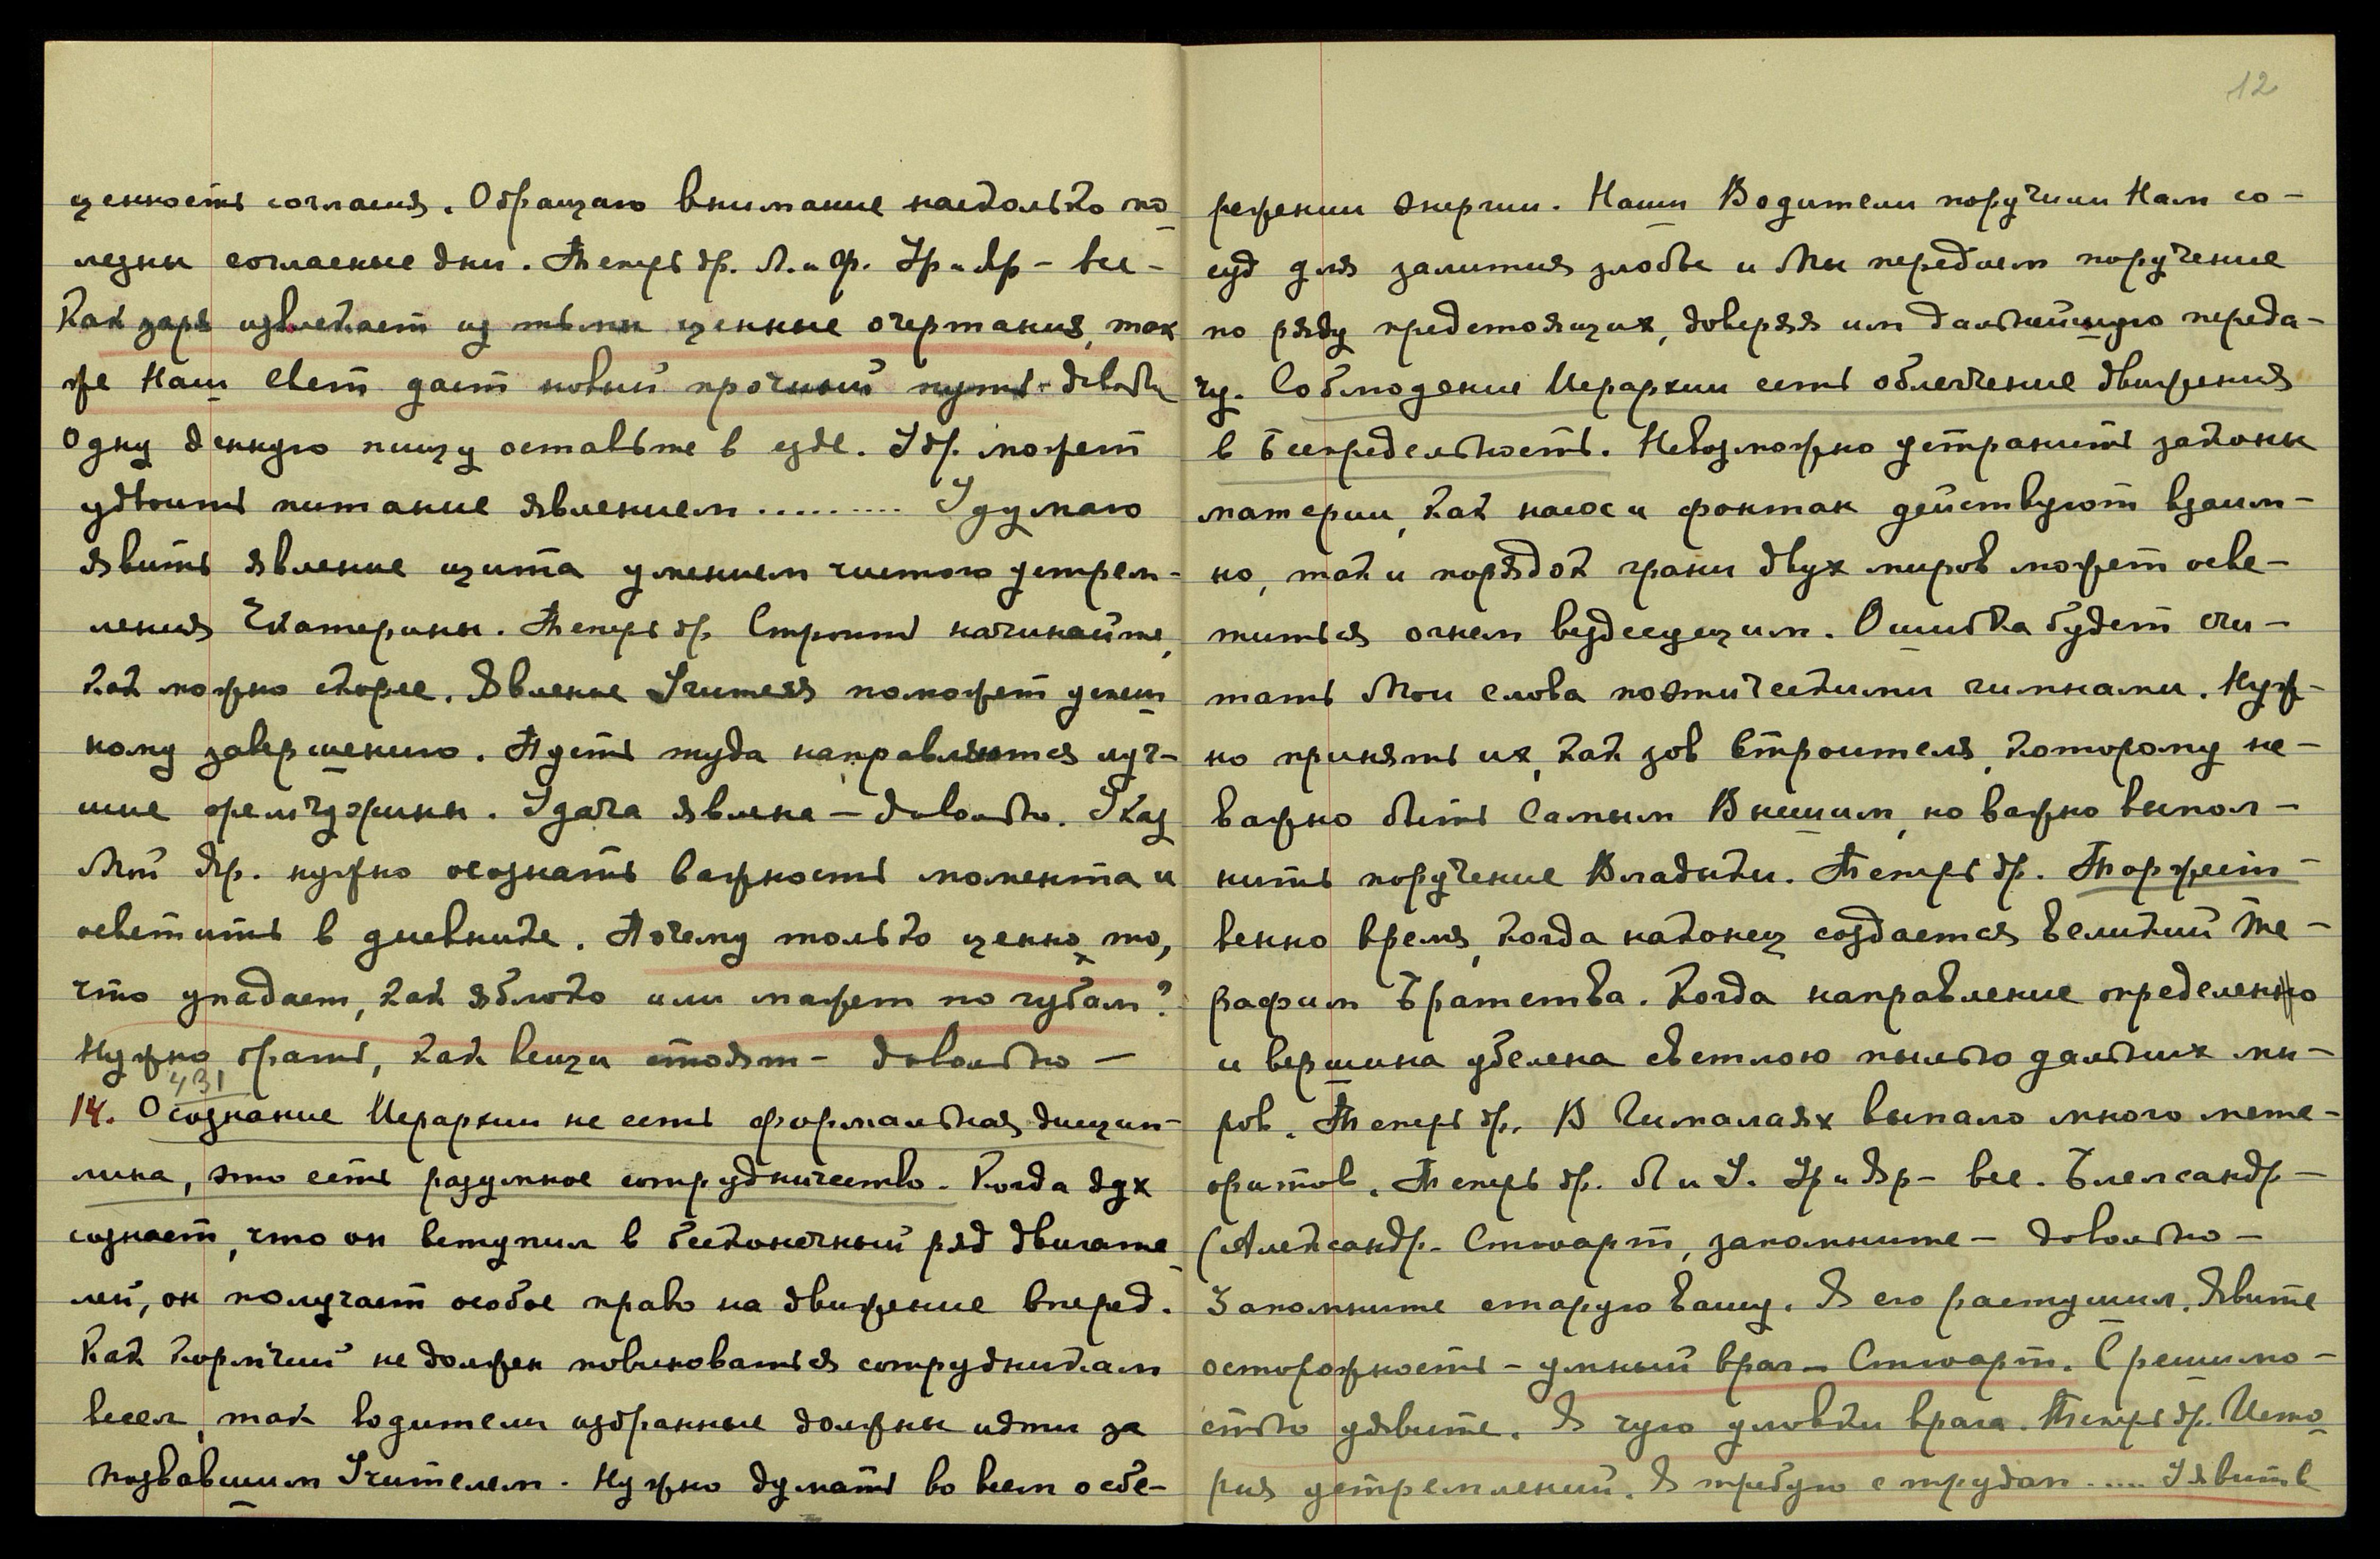 ценность согласия. Обращаю внимание насколько по
лезны согласные дни. Теперь др. Л. и Ф. Ур и Яр – все –
Как заря извлекает из тьмы ценные очертания, так
же Наш Свет дает новый прочный путь
Одну денную пищу оставьте в еде. Удр. может
удвоить питание явлением ......... Я думаю
явить явление щита умением чистого устрем-
ления Екатерины. Теперь др. Строить начинайте,
как можно скорее. Явление Учителя поможет успеш
ному завершению. Пусть туда направляются луч-
шие жемчужины. Удача явлена – довольно. Указ
Мой Яр. нужно осознать важность момента и
осветить в дневнике. Почему только ценно то,
что упадает, как яблоко или мажет по губам?
Нужно брать, как вещи стоят – довольно –
431
14. Осознание Иерархии не есть формальная дисцип-
лина, это есть разумное сотрудничество. Когда дух
сознает, что он вступил в бесконечный ряд двигате
лей, он получает особое право на движение вперед.
Как кормчий не должен повиноваться сотрудникам
весел, так водители избранные должны идти за
позвавшим Учителем. Нужно думать во всем о сбе-
12
режении энергии. Наши Водители поручили Нам со-
суд для залития злобы и Мы передаем поручение
по ряду предстоящих, доверяя им дальнейшую переда-
чу. Соблюдение Иерархии есть облегчение движения
в Беспредельность. Невозможно устранить законы
материи, как насос и фонтан действуют взаим-
но, так и порядок грани двух миров может осве-
титься огнем вездесущим. Ошибка будет счи-
тать Мои слова поэтическими гимнами. Нуж-
но принять их, как зов Строителя, которому не-
важно быть Самым Высшим, но важно выпол-
нить поручение Владыки. Теперь др. Торжест-
венно время, когда наконец создается Великий Те-
рафим Братства. Когда направление определенно
и вершина убелена светлою пылью дальних ми-
ров. Теперь др. В Гималаях выпало много мете-
оритов. Теперь др. Л и У. Ур и Яр – все.
(Александр – Стюарт, запомните – довольно –
Запомните старую Вашу. Я его растушил. Явите
осторожность – умный враг – Стюарт. С решимо-
стью удвите. Я чую уловки врага. Теперь др. Исто
рия устремлений. Я требую с трудом ..... Уявить